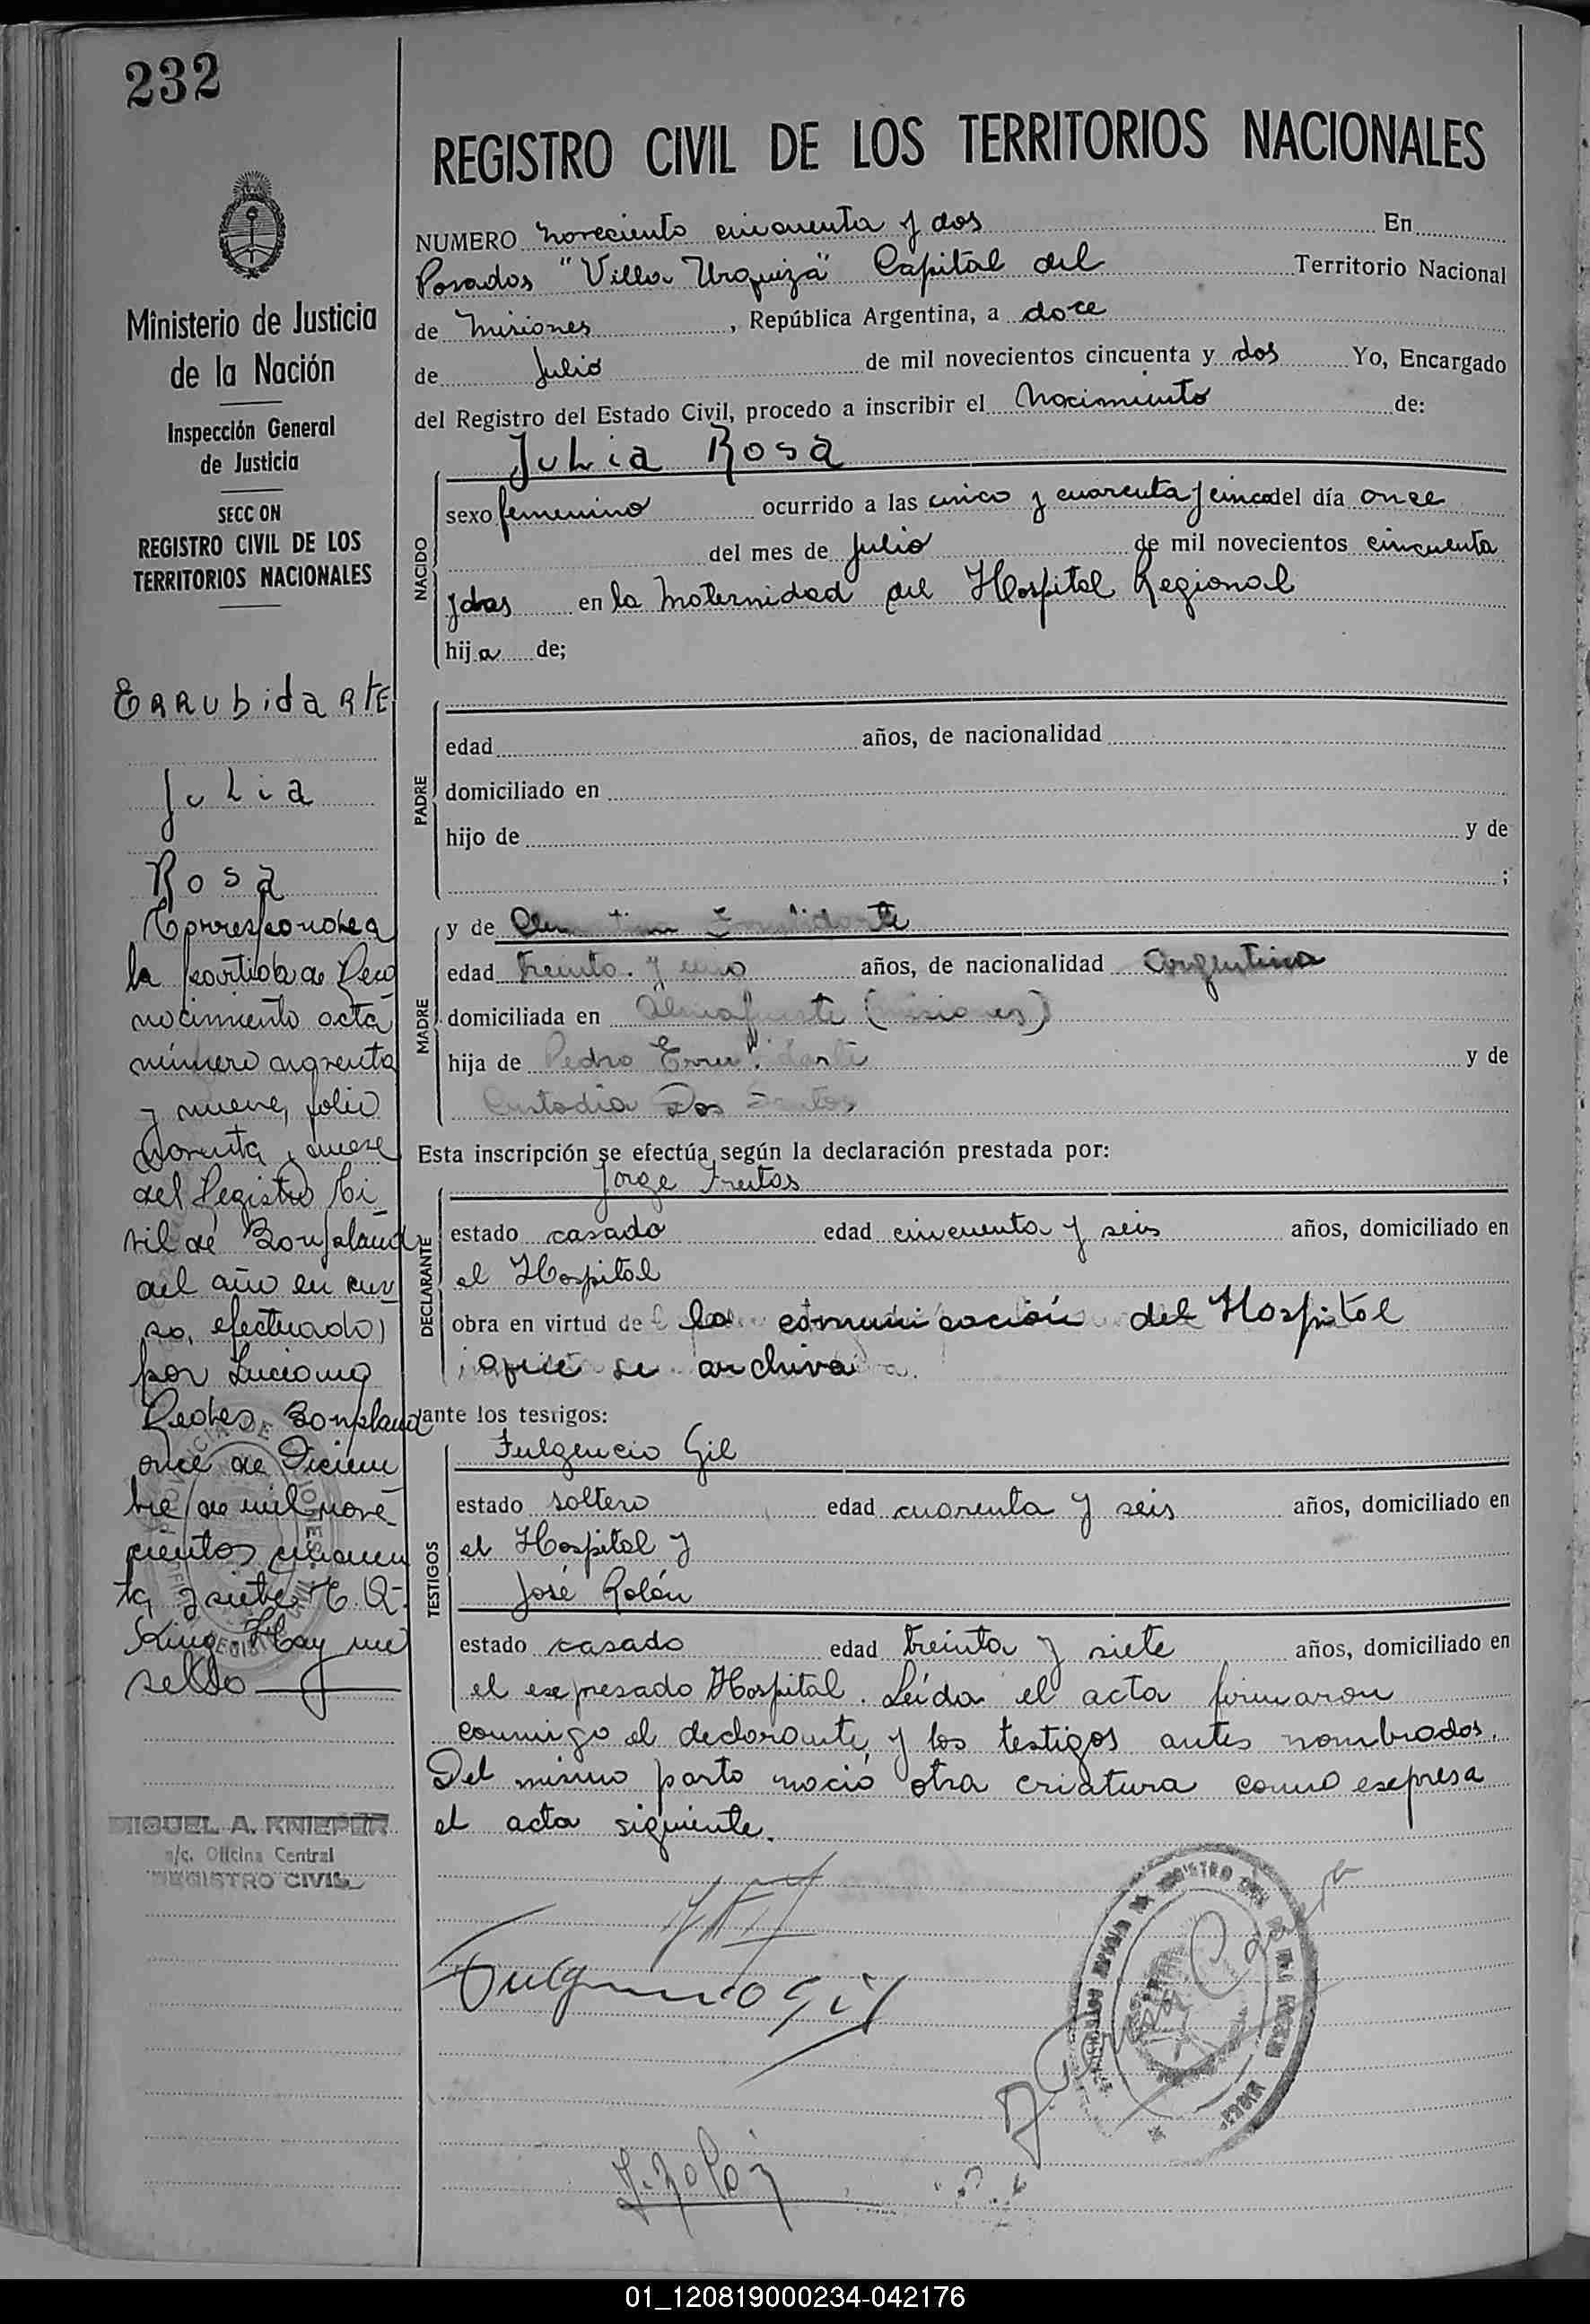 232
REGISTRO CIVIL DE LOS TERRITORIOS NACIONALES
NUMERO noveciento cincuenta y dos En
Posadas "Villa Urquiza" Capital del Territorio Nacional
de Misiones, República Argentina, a doce
de Julio de mil novecientos cincuenta y dos Yo, Encargado
del Registro del Estado Civil, procedo a inscribir el Nacimiento de:
Julia Rosa
NACIDO
sexo femenino ocurrido a las cinco y cuarenta y cinco del día once
del mes de Julio de mil novecientos cincuenta
y dos en la Maternidad del Hospital Regional
hija de;
PADRE
edad años, de nacionalidad
domiciliado en
hijo de y de
;
MADRE
y de Clementina Errubidarte
edad treinta y uno años, de nacionalidad Argentina
domiciliada en Almafuerte (Misiones)
hija de Pedro Errubidarte y de
Custodia Dos Santos
Esta inscripción se efectúa según la declaración prestada por:
Jorge Freitas
DECLARANTE
estado casado edad cincuenta y seis años, domiciliado en
el Hospital
obra en virtud de la comunicación del Hospital
que se archiva
ante los testigos:
Fulgencio Gil
TESTIGOS
estado soltero edad cuarenta y seis años, domiciliado en
el Hospital y
José Rolón
estado casado edad treinta y siete años, domiciliado en
el expresado Hospital. Leída el acta firmaron
conmigo el declarante y los testigos antes nombrados.
Del mismo parto nació otra criatura como expresa
el acta siguiente.
Fulgencio Gil
J. Rolón
Ministerio de Justicia
de la Nación
Inspección General
de Justicia
SECC ON
REGISTRO CIVIL DE LOS
TERRITORIOS NACIONALES
Errubidarte
Julia
Rosa
Corresponde a
la partida de Reco
nocimiento acta
número noventa
y nueve, folio
noventa y nueve
del Registro Ci
vil de Bonpland
del año en cur
so, efectuado
por Luciano
Bonpland
once de Diciem
bre de mil nove
cientos cincuen
ta y siete E. Q.
King. Hay un
sello
MIGUEL A. KNIEPER
a/c. Oficina Central
REGISTRO CIVIL
01_120819000234-042176